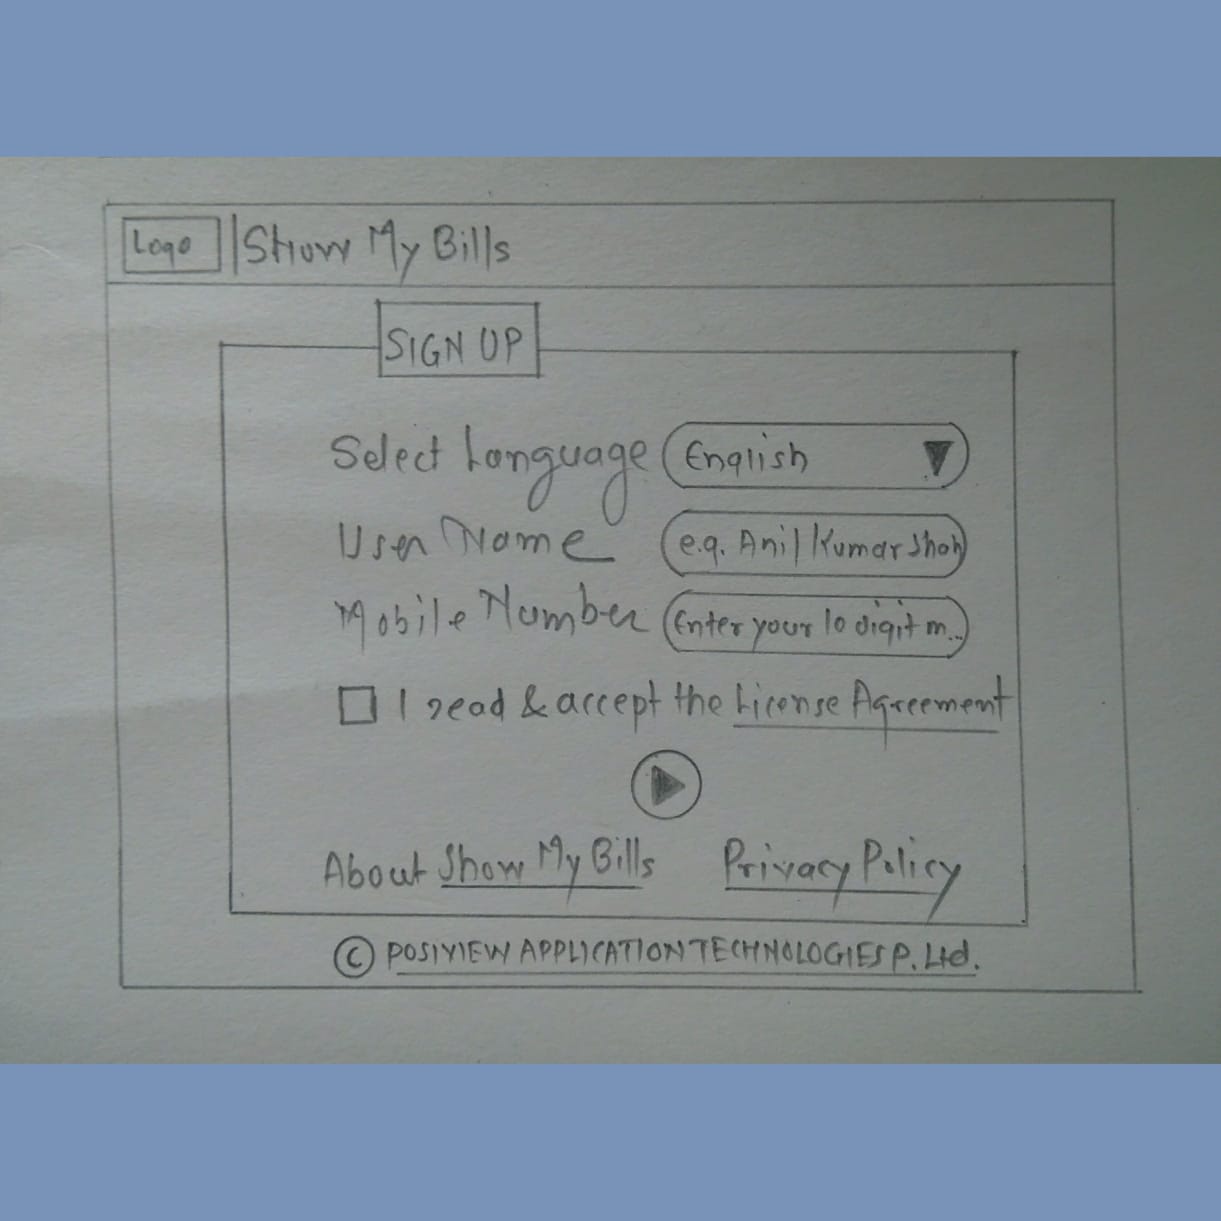 Logo | Show My Bills
SIGN UP
Select Language English
User Name e.g. Anil Kumar Shah
Mobile Number Enter your 10 digit m...
I read & accept the License Agreement
About Show My Bills Privacy Policy
© POSIVIEW APPLICATION TECHNOLOGIES P. Ltd.